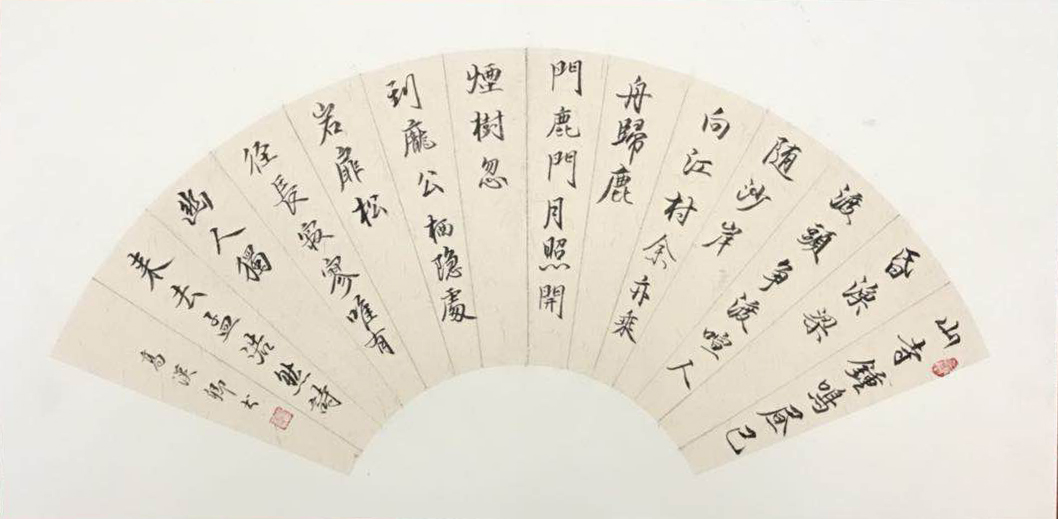 山寺鍾鳴昼已
昏漁梁
渡頭争渡喧人
随沙岸
向江村余亦乘
舟歸鹿
門鹿門月照開
煙樹忽
到龐公栖隐處
岩扉松
径長寂寥唯有
幽人獨
来去孟浩然詩
高溪卿书